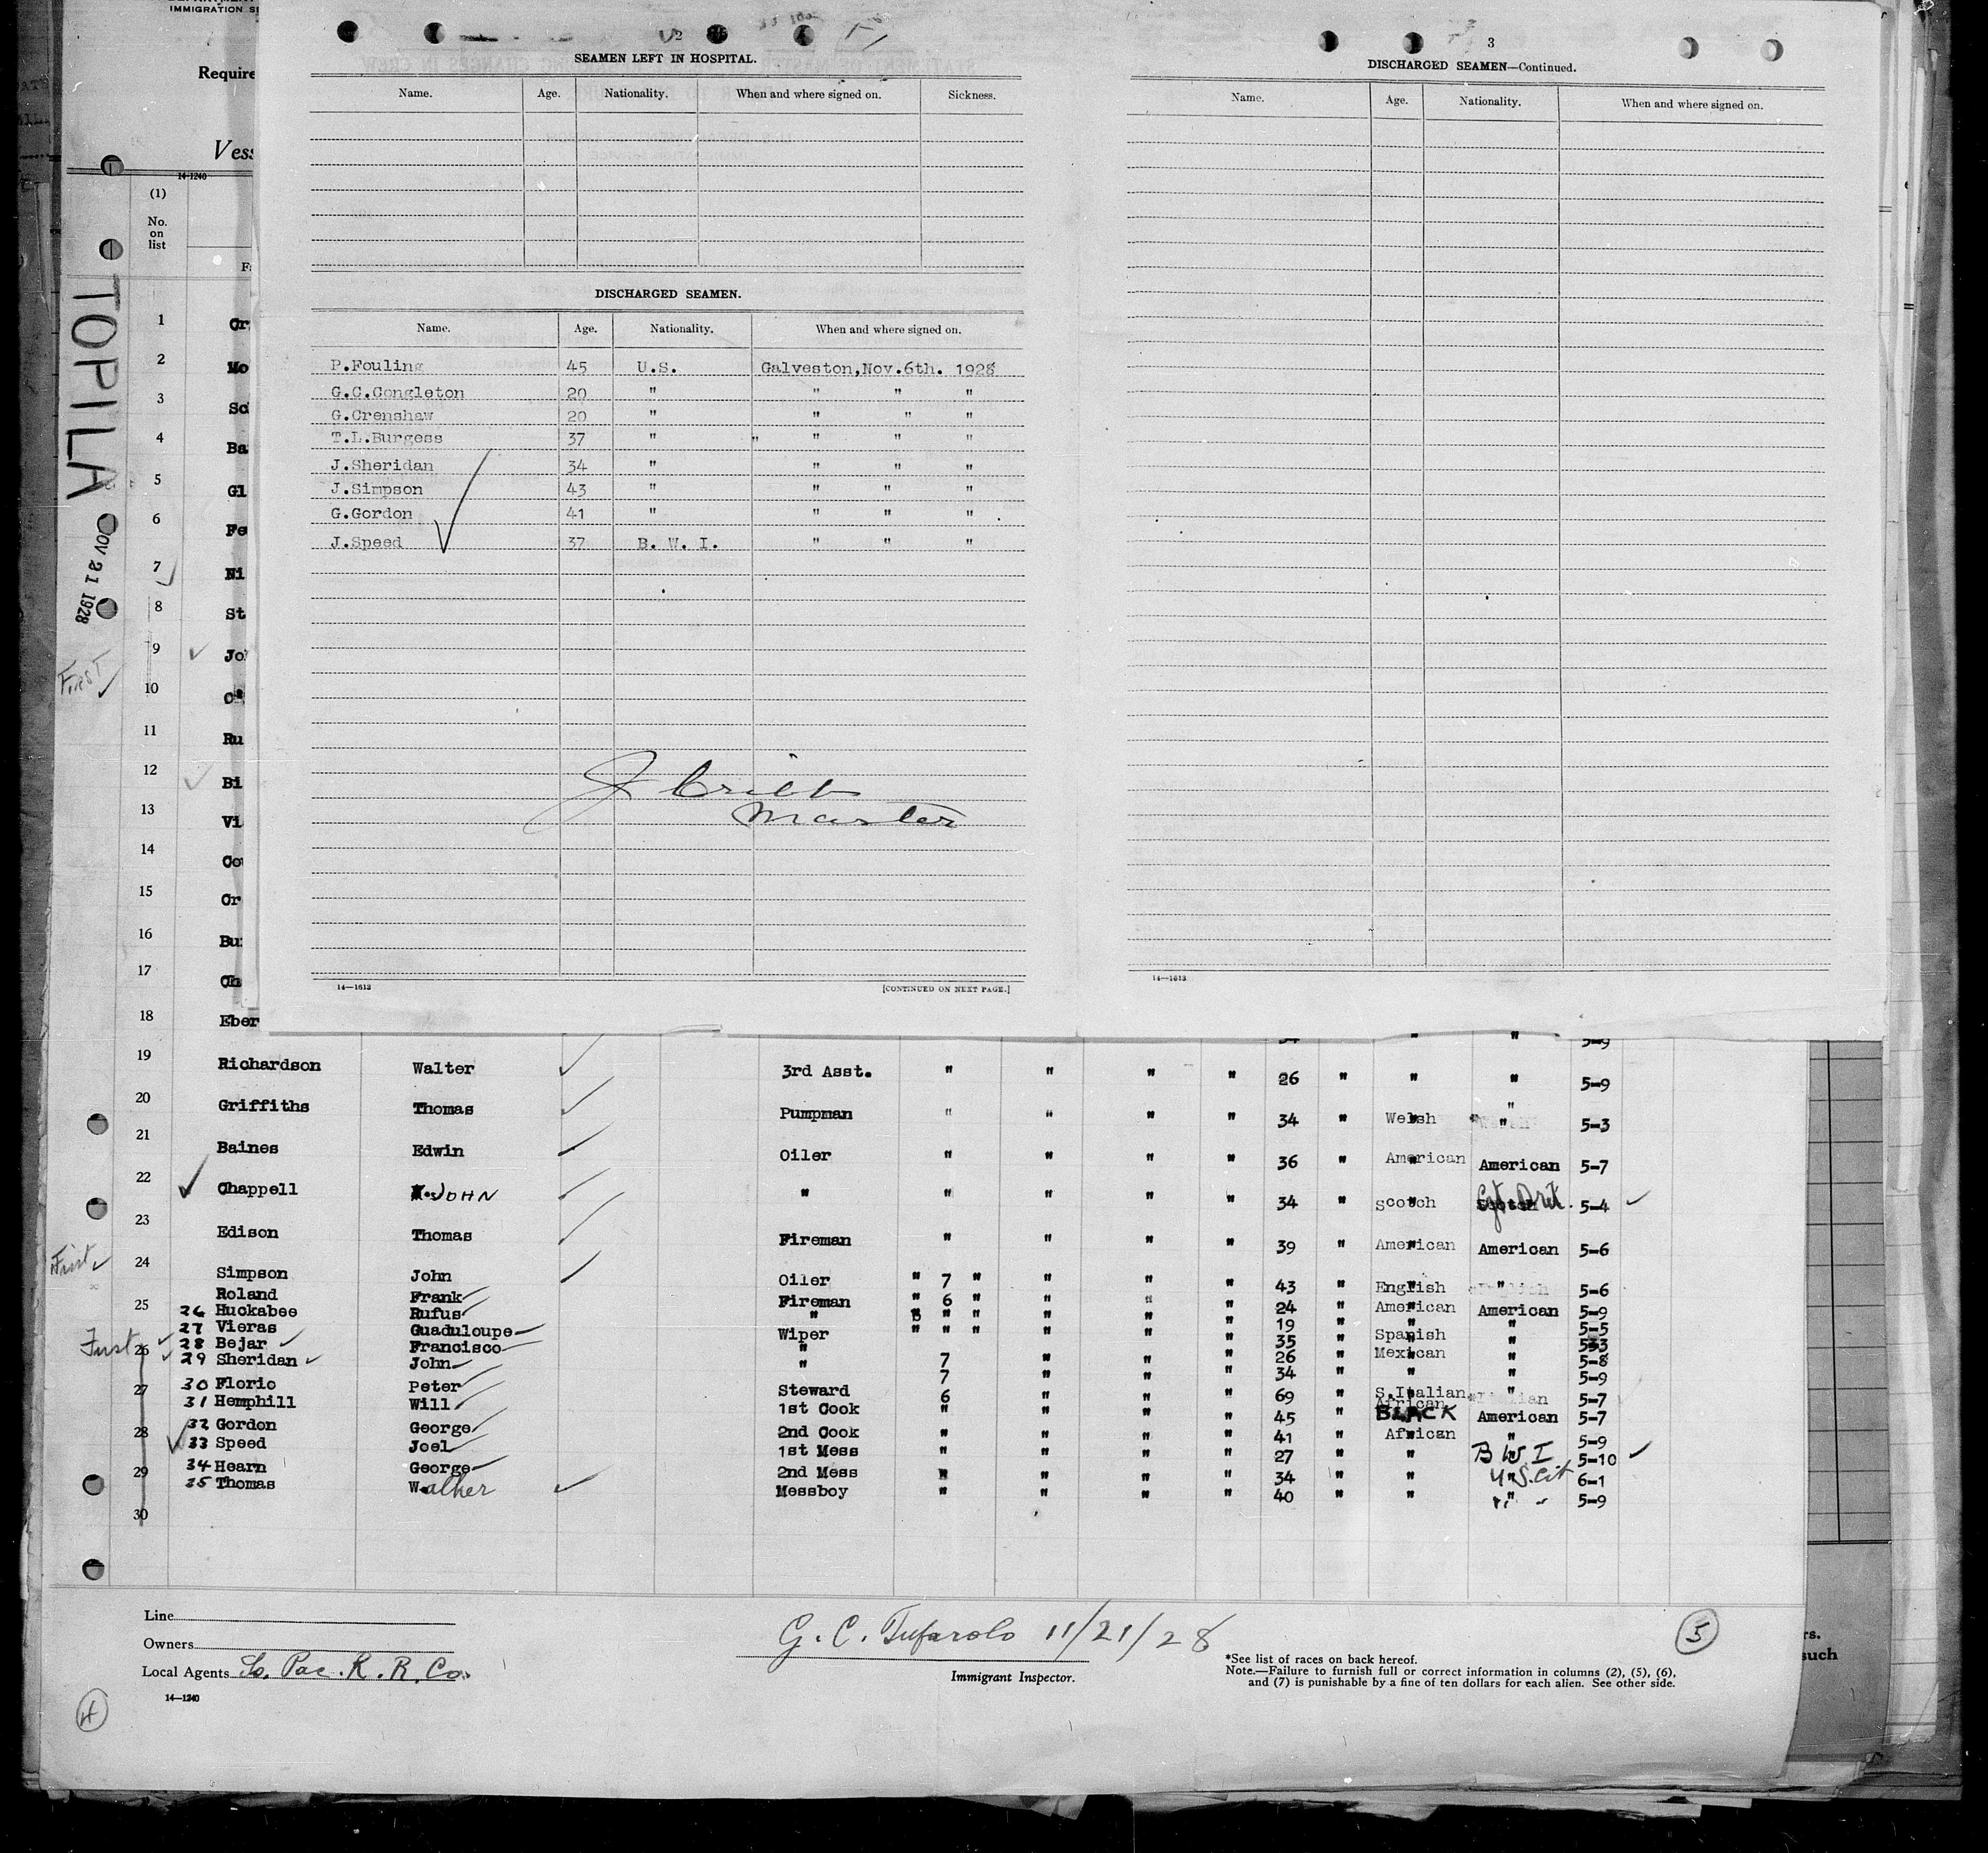 IMMIGRATION
Require
Vess
14-1240
(1)
No.
on
list
TOPILA
OV 21 1928
2
SEAMEN LEFT IN HOSPITAL.
Name. Age. Nationality. When and where signed on. Sickness.
DISCHARGED SEAMEN.
Name. Age. Nationality. When and where signed on.
P.Fouling 45 U.S. Galveston,Nov.6th. 1928
G.C.Congleton 20 " " " "
G.Crenshaw 20 " " " "
T.L.Burgess 37 " " " " "
J.Sheridan 34 " " " "
J.Simpson 43 " " " "
G.Gordon 41 " " " "
J.Speed 37 B. W. I. " " "
Master
14—1613 [CONTINUED ON NEXT PAGE.]
3
DISCHARGED SEAMEN—Continued.
Name. Age. Nationality. When and where signed on.
14—1613
1
2 Mo
3
4 Ba
5 Gl
6 Fe
7 Ni
8 St
9 Jo
First
10
11 Ru
12 Bi
13 Vi
14 Co
15 Or
16 Bu
17
18 Eber " " 5-9
19 Richardson Walter 3rd Asst. " " " " 26 " " " 5-9
20 Griffiths Thomas Pumpman " " " " 34 " Welsh " 5-3
21 Baines Edwin Oiler " " " " 36 " American American 5-7
22 Chappell JOHN " " " " " 34 " Scotch 5-4
23 Edison Thomas Fireman " " " " 39 " American American 5-6
First
24 Simpson John Oiler " 7 " " " " 43 " English " 5-6
25 Roland Frank Fireman " 6 " " " " 24 " American American 5-9
26 Huckabee Rufus " " " " " " 19 " " " 5-5
27 Vieras Guaduloupe Wiper " " " " " " 35 " Spanish "
First
28 Bejar Francisco " 7 " " " 26 " Mexican " 5-8
29 Sheridan John " 7 " " " 34 " " " 5-9
30 Florio Peter Steward 6 " " " 69 " S.Italian " 5-7
31 Hemphill Will 1st Cook " " " " 45 " BLACK American 5-7
32 Gordon George 2nd Cook " " " " 41 " African " 5-9
33 Speed Joel 1st Mess " " " " 27 " " B W I 5-10
34 Hearn George 2nd Mess " " " " 34 " " U.S. Cit 6-1
35 Thomas Walker Messboy " " " " 40 " " " 5-9
26
27
28
29
30
Line
Owners
Local Agents So. Pac. R. R. Co.
14—1240
4
G. C. Tufarolo 11/21/28
Immigrant Inspector.
5
*See list of races on back hereof.
Note.—Failure to furnish full or correct information in columns (2), (5), (6),
and (7) is punishable by a fine of ten dollars for each alien. See other side.
rs.
such